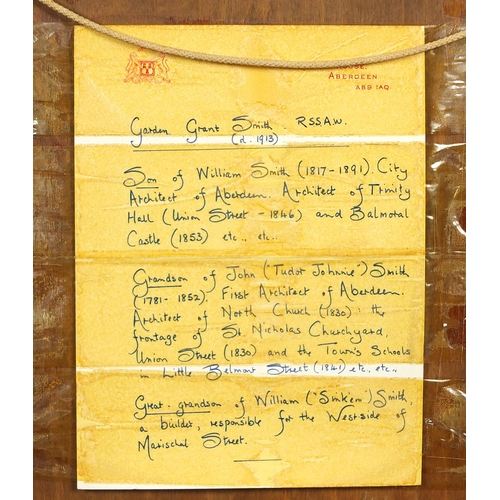 ABERDEEN
AB9 1AQ.
Garden Grant Smith - R.S.S.A.W.
(d. 1913)
Son of William Smith (1817-1891). City
Architect of Aberdeen. Architect of Trinity
Hall (Union Street - 1846) and Balmoral
Castle (1853) etc., etc.
Grandson of John ("Tudor Johnnie") Smith
(1781-1852). First Architect of Aberdeen.
Architect of North Church (1830): the
frontage of St. Nicholas Churchyard,
Union Street (1830) and the Town's Schools
in Little Belmont Street (1841) etc., etc.,
Great-grandson of William ("Sinkem") Smith,
a builder, responsible for the Westside of
Marischal Street.